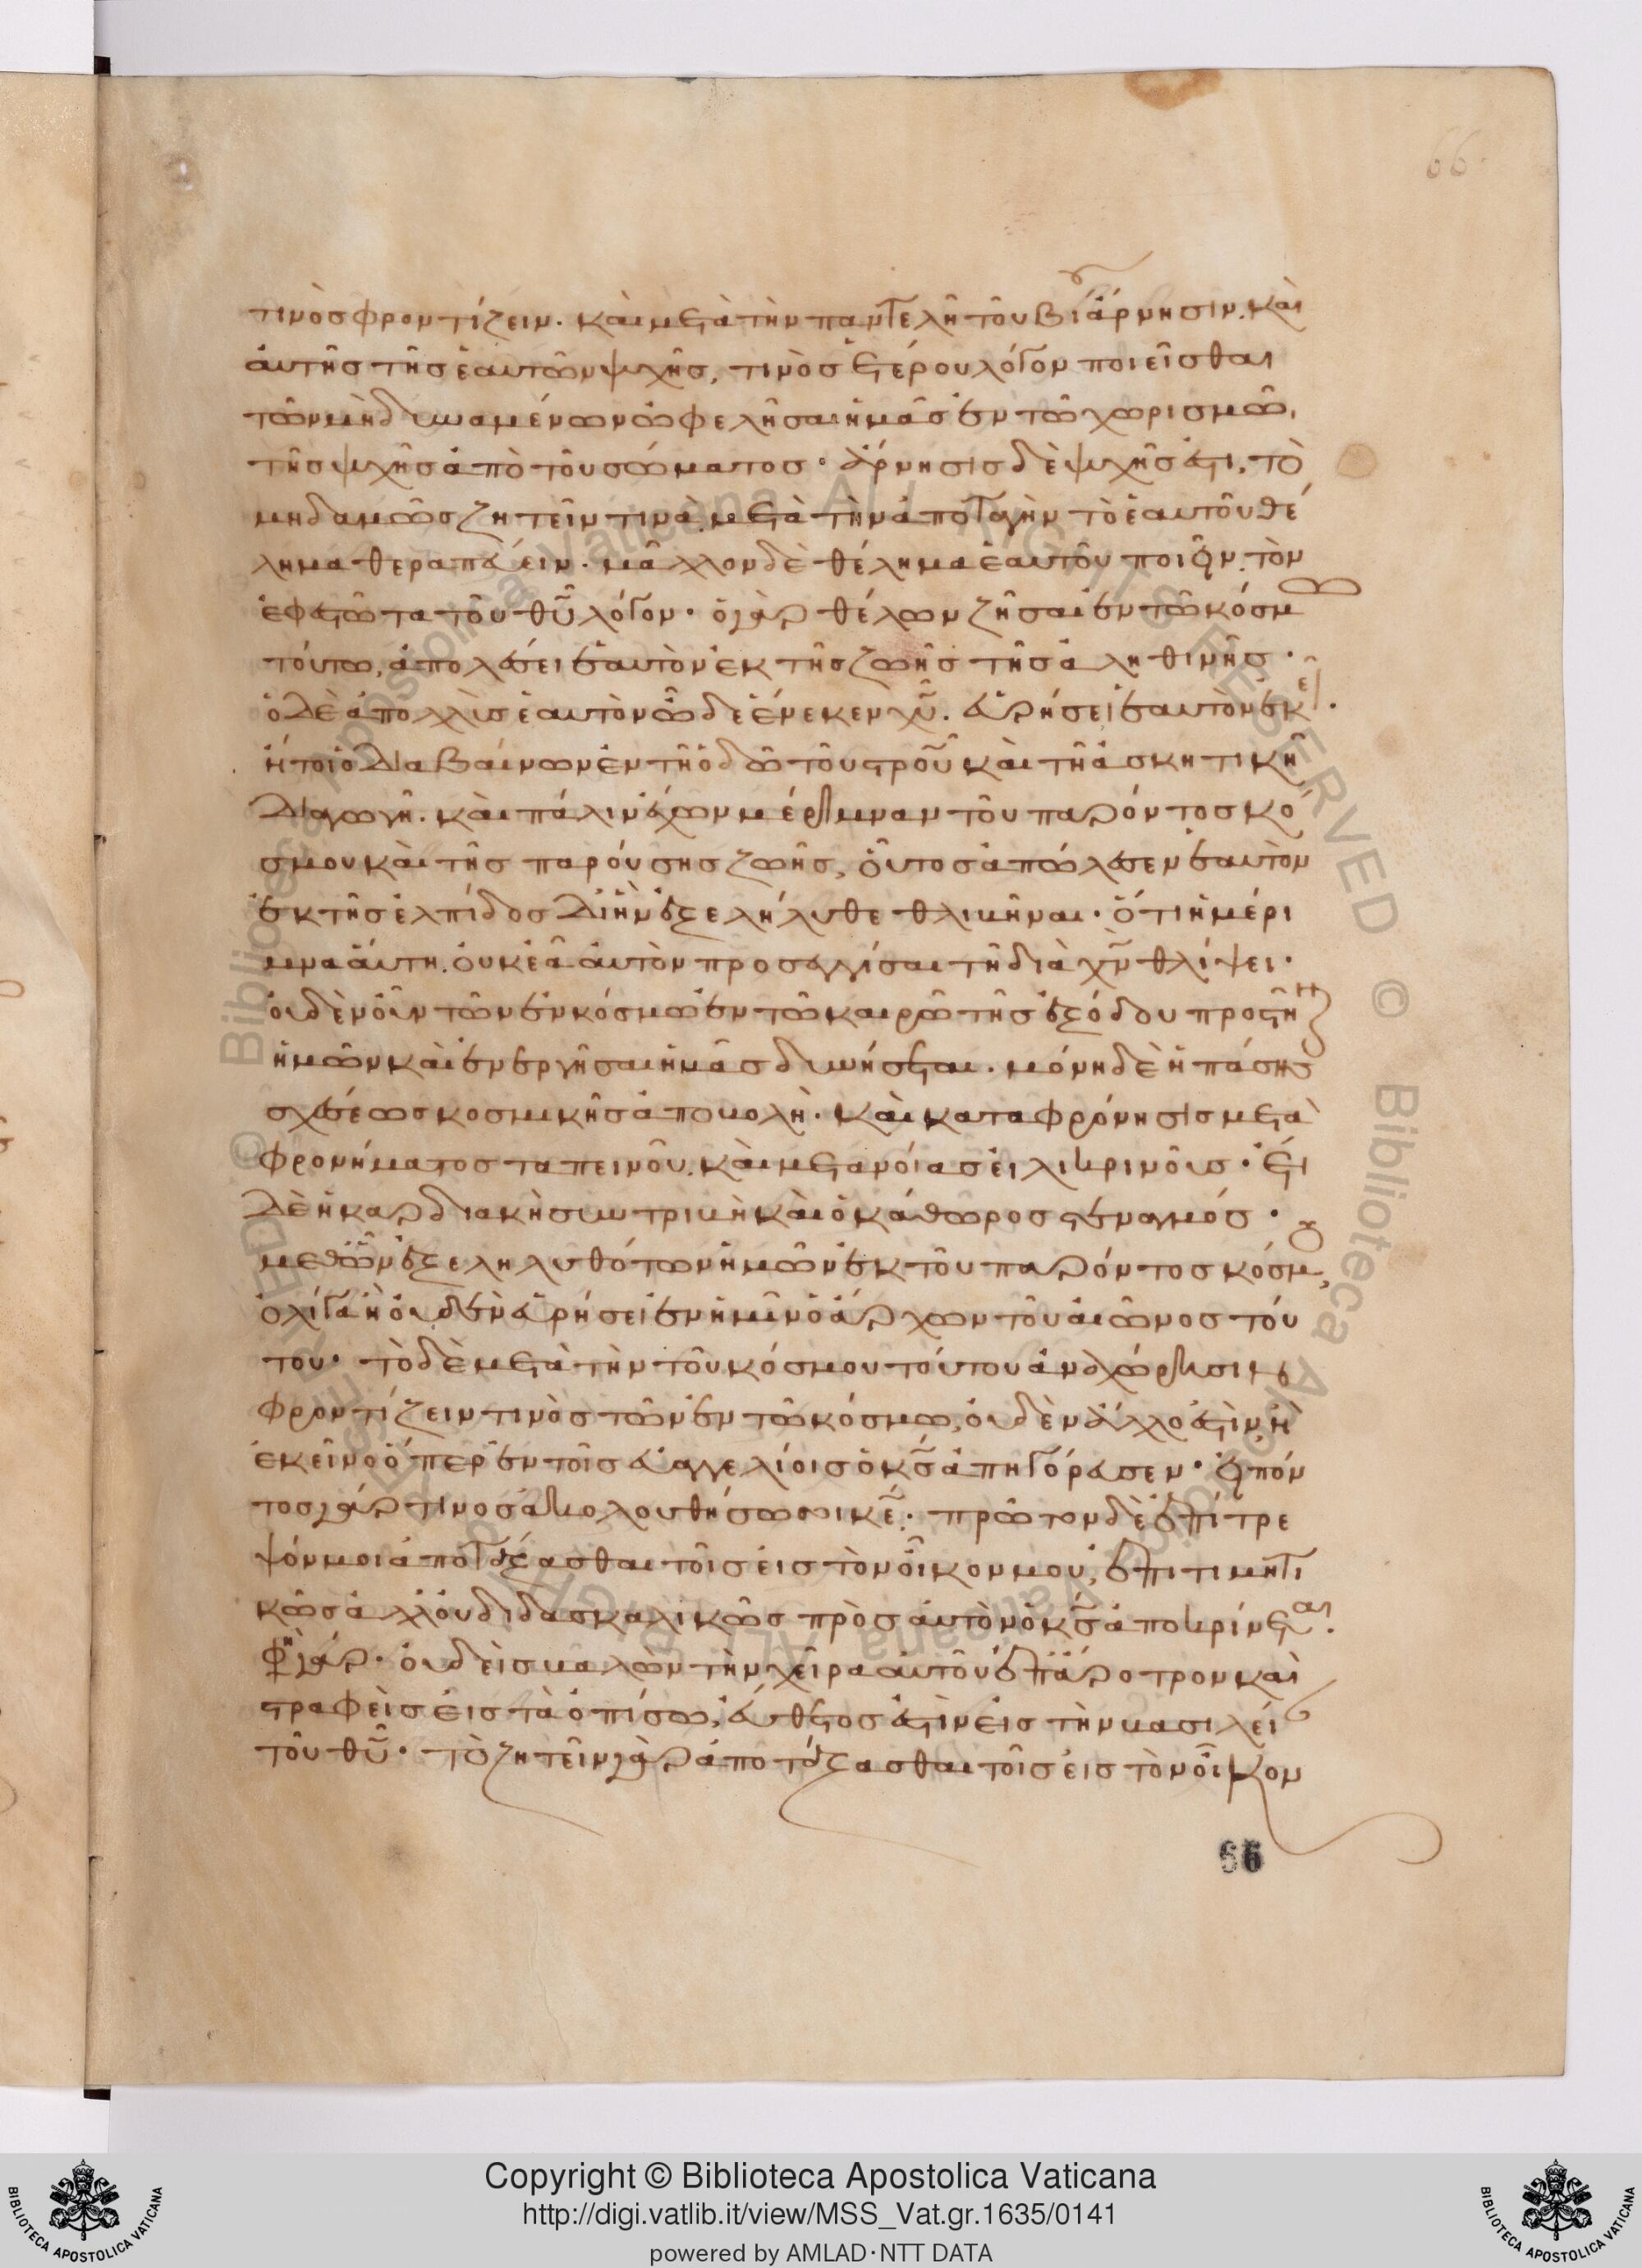 66
τινὸς φροντίζειν. καὶ μετὰ τὴν παντελῆ τοῦ βίου ἄρνησιν. καὶ
αὐτῆς τῆς ἑαυτῶν ψυχῆς, τινὸς ἑτέρου λόγον ποιεῖσθαι
τῶν μὴ δυναμένων ὠφελῆσαι ἡμᾶς ἐν τῶ χωρισμῶ,
τῆς ψυχῆς ἀπὸ τοῦ σώματος· ἄρνησις δὲ ψυχῆς ἐστι, τὸ
μηδαμῶς ζητεῖν τινὰ μετὰ τὴν ἀποταγὴν τὸ ἑαυτοῦ θέ
λημα θεραπεύειν. μᾶλλον δὲ θέλημα ἑαυτοῦ ποιεῖν τὸν
ἐφεστῶτα τοῦ θῦ λόγον· ὁ γὰρ θέλων ζῆσαι ἐν τῶ κόσμω
τούτω, ἀπολέσει ἑαυτὸν ἐκ τῆς ζωῆς τῆς ἀληθινῆς·
ὁ δὲ ἀπολλὺς ἑαυτὸν ὧδε ἕνεκεν χῦ. εὑρήσει ἑαυτὸν ἐκεῖ.
ἤτοι ὁ διαβαίνων ἐν τῆ ὁδῶ τοῦ στροῦ καὶ τῆ ἀσκητικῆ
διαγωγῆ. καὶ πάλιν ἔχων μέριμναν τοῦ παρόντος κό
σμου καὶ τῆς παρούσης ζωῆς, οὗτος ἀπώλεσεν ἑαυτὸν
ἐκ τῆς ἐλπίδος δι' ἣν ἐξελήλυθε θλιβῆναι· ὅτι ἡ μέρι
μνα αὕτη. οὐκ ἐᾶ αὐτὸν προσεγγίσαι τῆ διὰ χν θλίψει·
οὐδὲν οὖν τῶν ἐν κόσμω ἐν τῶ καιρῶ τῆς ἐξόδου προστῆναι
ἡμῶν καὶ ἐνεργῆσαι ἡμᾶς δυνήσεται. μόνη δὲ ἡ πάσης
σχέσεως κοσμικῆς ἀποβολὴ. καὶ καταφρόνησις μετὰ
φρονήματος ταπεινοῦ. καὶ μετανοίας εἰλικρινοῦς· ἔτι
δὲ ἡ καρδιακὴ συντριβὴ καὶ ὁ κάθωρος στεναγμός·
μεθ' ὧν ἐξεληλυθότων ἡμῶν ἐκ τοῦ παρόντος κόσμου,
ὀλίγα ἢ οὐδὲν εὑρήσει ἐν ἡμῖν ὁ ἄρχων τοῦ αἰῶνος τού
του· τὸ δὲ μετὰ τὴν τοῦ κόσμου τούτου ἀναχώρησιν
φροντίζειν τινὸς τῶν ἐν τῶ κόσμω, οὐδὲν ἄλλο ἐστὶν, ἢ
ἐκεῖνο ὅπερ ἐν τοῖς εὐαγγελίοις ὁ κς ἀπηγόρευσεν· εἰπόν
τος γάρ τινος ἀκολουθήσω σοι κε. πρῶτον δὲ ἐπίτρε
ψόν μοι ἀποτάξασθαι τοῖς εἰς τὸν οἶκον μου, ἐπιτιμητι
κῶς ἀλλ' οὐ διδασκαλικῶς πρὸς αὐτὸν ὁ κς ἀποκρίνεται.
φη γάρ· οὐδεὶς βαλὼν τὴν χεῖρα αὐτοῦ ἐπ' ἄροτρον καὶ
στραφεὶς εἰς τὰ ὀπίσω, εὔθετος ἐστὶν εἰς τὴν βασιλεί
τοῦ θῦ· τὸ ζητεῖν γὰρ ἀποτάξασθαι τοῖς εἰς τὸν οἶκον
66
Copyright © Biblioteca Apostolica Vaticana
http://digi.vatlib.it/view/MSS_Vat.gr.1635/0141
powered by AMLAD·NTT DATA